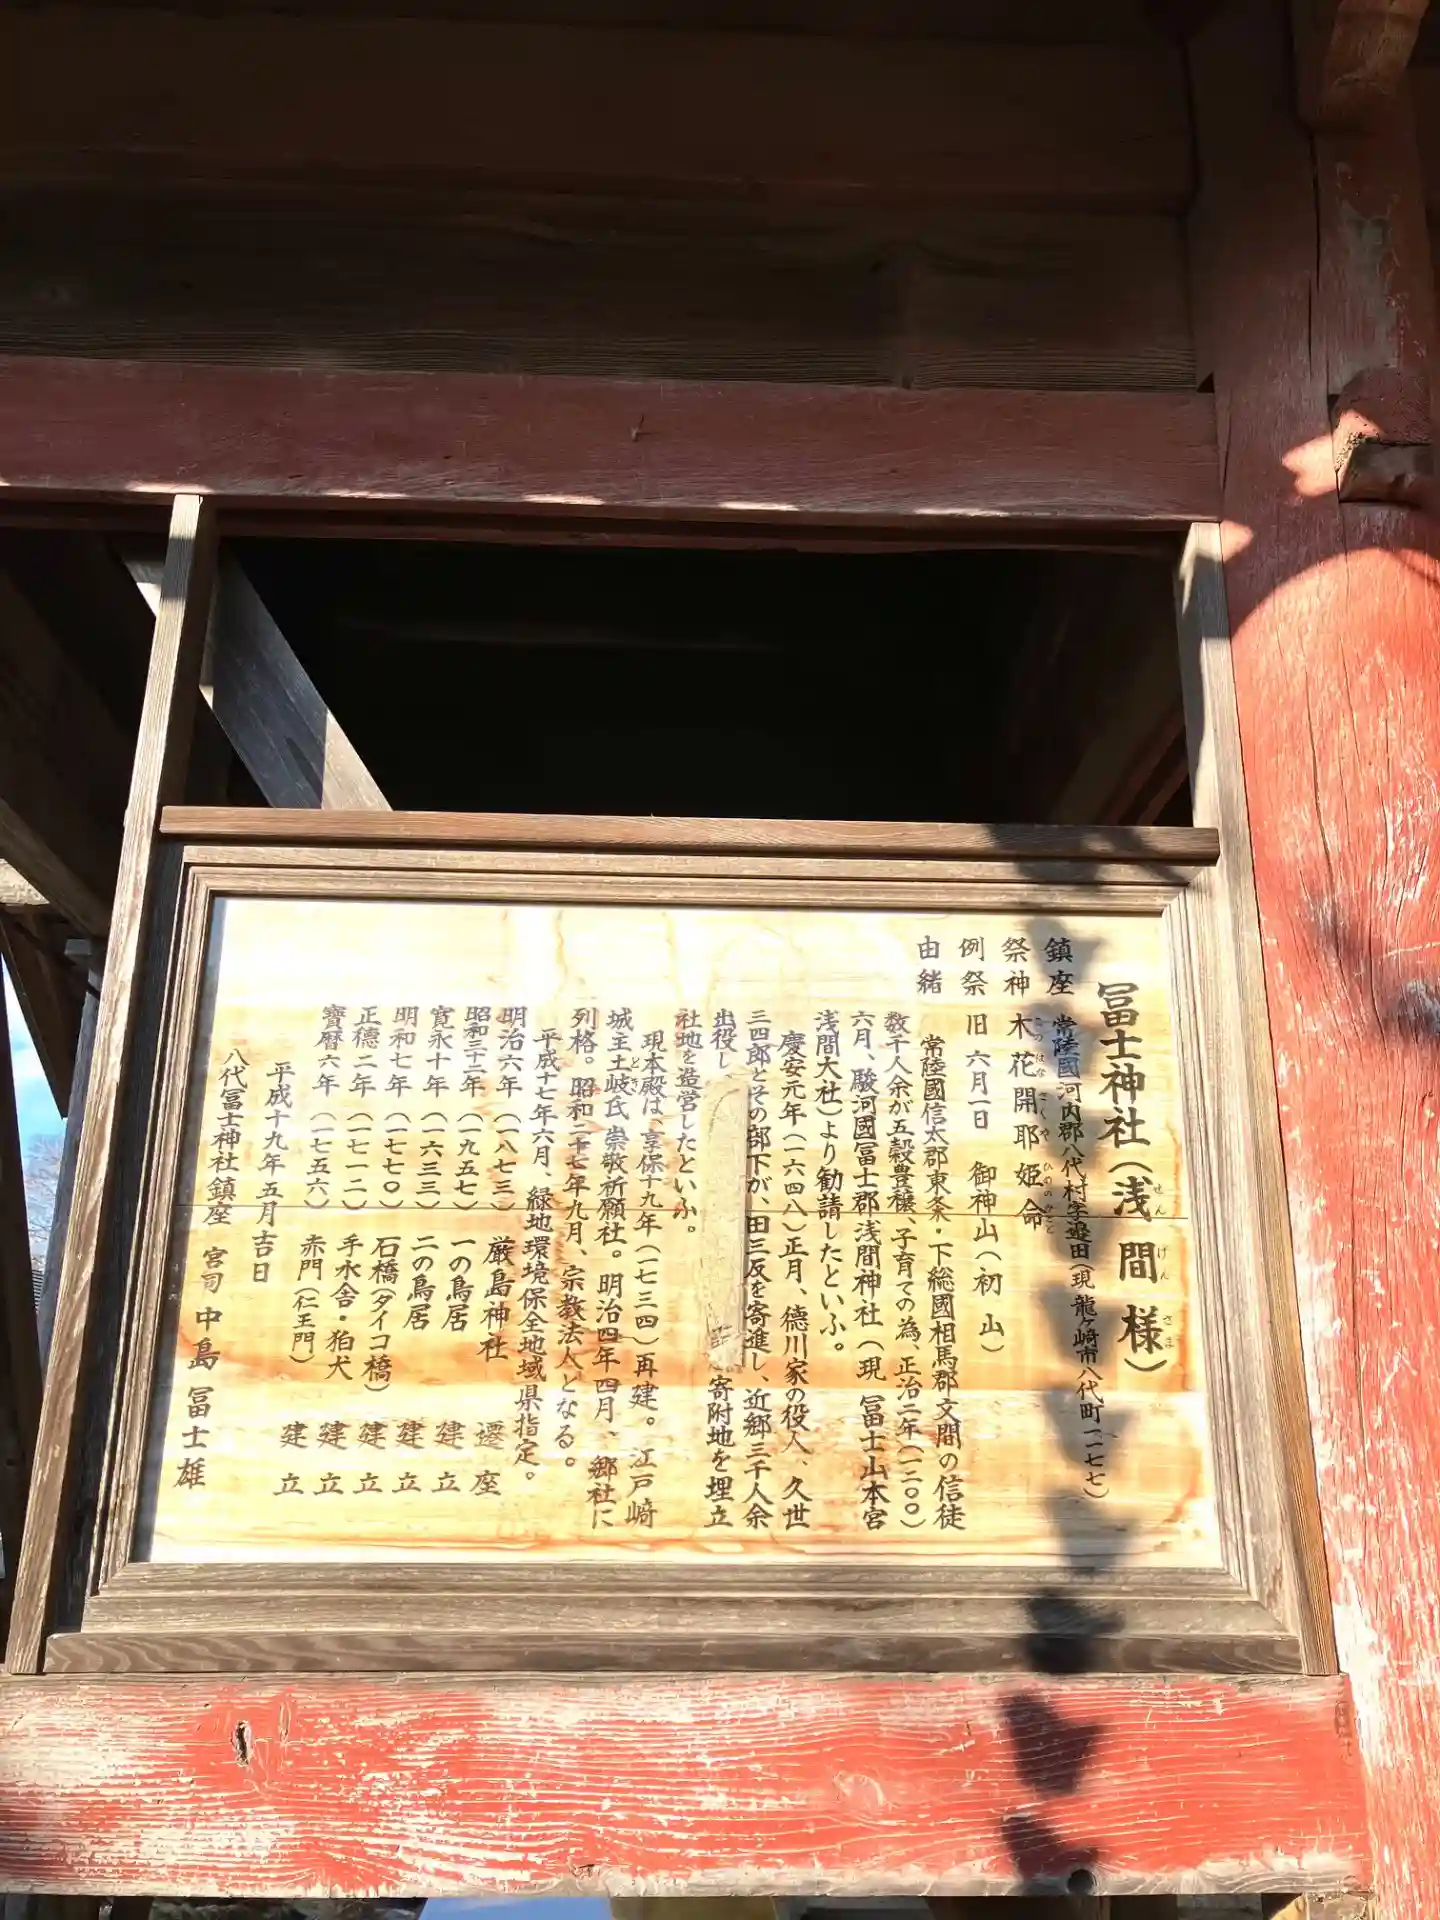 冨士神社(浅間様)
せんげんさま
鎮座 常陸國河内郡八代村字追田(現 龍ヶ崎市八代町一一七七)
祭神 木花開耶姫命
このはなさくやひめのみこと
例祭 旧六月一日 御神山(初山)
由緒
常陸國信太郡東条・下総國相馬郡文間の信徒
数千人余が五穀豊穣、子育ての為、正治二年(一二〇〇)
六月、駿河國冨士郡浅間神社(現 冨士山本宮
浅間大社)より勧請したといふ。
慶安元年(一六四八)正月、德川家の役人、久世
三四郎とその部下が、田三反を寄進し、近郷三千人余
出役し 寄附地を埋立
社地を造営したといふ。
現本殿は、享保十九年(一七三四)再建。江戸﨑
城主土岐氏崇敬祈願社。明治四年四月、郷社に
とき
列格。昭和二十七年九月、宗教法人となる。
平成十七年六月、緑地環境保全地域県指定。
明治六年(一八七三) 厳島神社 遷座
昭和三十二年(一九五七) 一の鳥居 建立
寛永十年(一六三三) 二の鳥居 建立
明和七年(一七七〇) 石橋(タイコ橋) 建立
正德二年(一七一二) 手水舎・狛犬 建立
寶暦六年(一七五六) 赤門(仁王門) 建立
平成十九年五月吉日
八代冨士神社鎮座 宮司 中島冨士雄